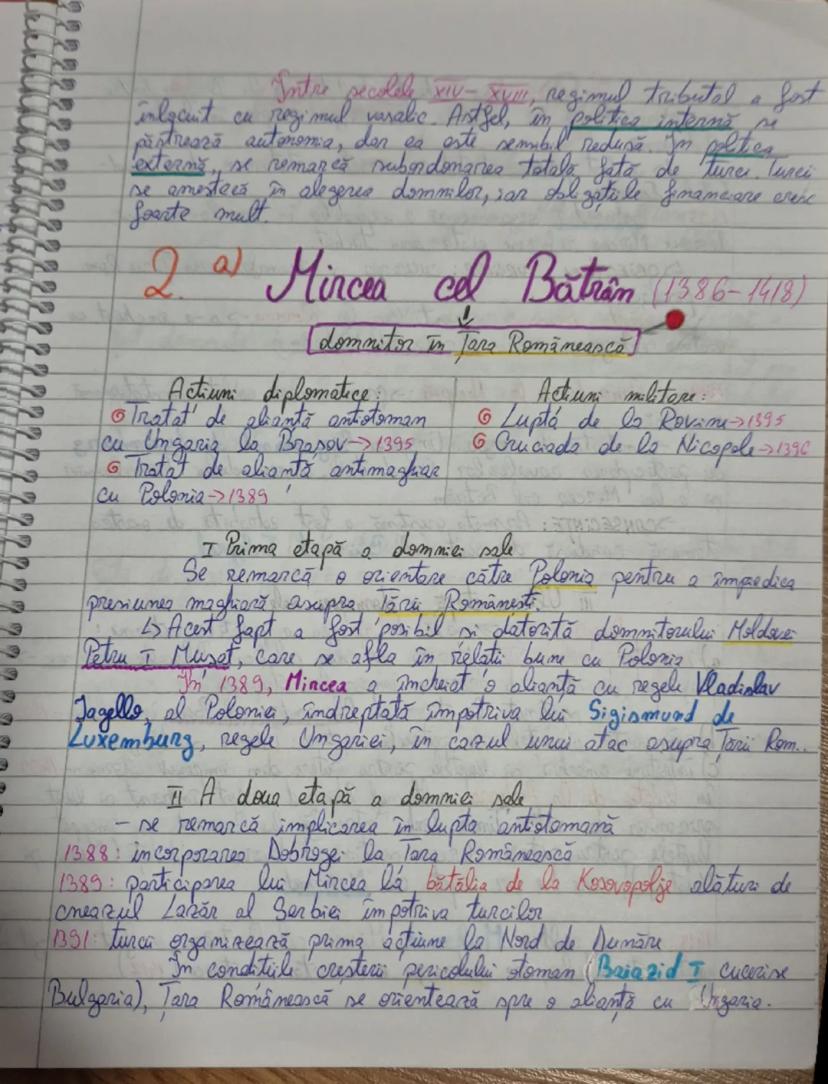 Între secolele XIV-XVIII, regimul tributal a fost
înlocuit cu regimul vasalic. Astfel, în politica internă se
păstrează autonomia, dar ea este sensibil redusă. În politica
externă, se remarcă subordonarea totală față de turci. Turcii
se amestecă în alegerea domnilor, iar obligațiile financiare cresc
foarte mult.
2. a) Mircea cel Bătrân (1386-1418)
↓
domnitor în Țara Românească
Acțiuni diplomatice:
Tratat de alianță antiotoman
cu Ungaria la Brașov→1395
Tratat de alianță antimaghiar
cu Polonia→1389
Acțiuni militare:
Luptă de la Rovine→1395
Cruciada de la Nicopole→1396
I Prima etapă a domniei sale
Se remarcă o orientare către Polonia pentru a împiedica
presiunea maghiară asupra Țării Românești.
↳ Acest fapt a fost posibil și datorită domnitorului Moldovei
Petru I Mușat, care se afla în relații bune cu Polonia
În 1389, Mircea a încheiat o alianță cu regele Vladislav
Jagello, al Poloniei, îndreptată împotriva lui Sigismund de
Luxemburg, regele Ungariei, în cazul unui atac asupra Țării Rom..
II A doua etapă a domniei sale
- se remarcă implicarea în lupta antiotomană
1388: incorporarea Dobrogei la Țara Românească
1389: participarea lui Mircea la bătălia de la Kosovopolje alături de
cneazul Lazăr al Serbiei împotriva turcilor
1391: turcii organizează prima acțiune la Nord de Dunăre
În condițiile creșterii pericolului otoman (Baiazid I cucerise
Bulgaria), Țara Românească se orientează spre o alianță cu Ungaria.